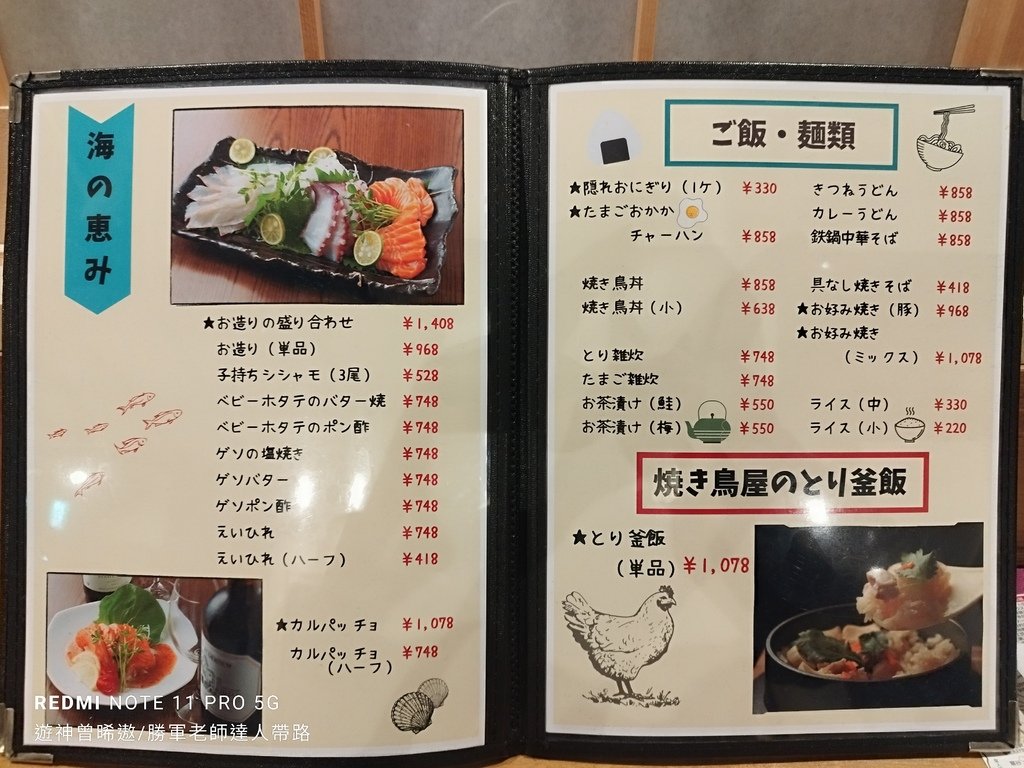 海の恵み
★お造りの盛り合わせ ¥1,408
お造り（単品） ¥968
子持ちシシャモ（3尾） ¥528
ベビーホタテのバター焼 ¥748
ベビーホタテのポン酢 ¥748
ゲソの塩焼き ¥748
ゲソバター ¥748
ゲソポン酢 ¥748
えいひれ ¥748
えいひれ（ハーフ） ¥418
★カルパッチョ ¥1,078
カルパッチョ ¥748
（ハーフ）
REDMI NOTE 11 PRO 5G
遊神曾晞遨/勝軍老師達人帶路
ご飯・麺類
★隠れおにぎり（1ケ） ¥330
★たまごおかか
チャーハン ¥858
焼き鳥丼 ¥858
焼き鳥丼（小） ¥638
とり雑炊 ¥748
たまご雑炊 ¥748
お茶漬け（鮭） ¥550
お茶漬け（梅） ¥550
きつねうどん ¥858
カレーうどん ¥858
鉄鍋中華そば ¥858
具なし焼きそば ¥418
★お好み焼き（豚） ¥968
★お好み焼き
（ミックス） ¥1,078
ライス（中） ¥330
ライス（小） ¥220
焼き鳥屋のとり釜飯
★とり釜飯
（単品） ¥1,078